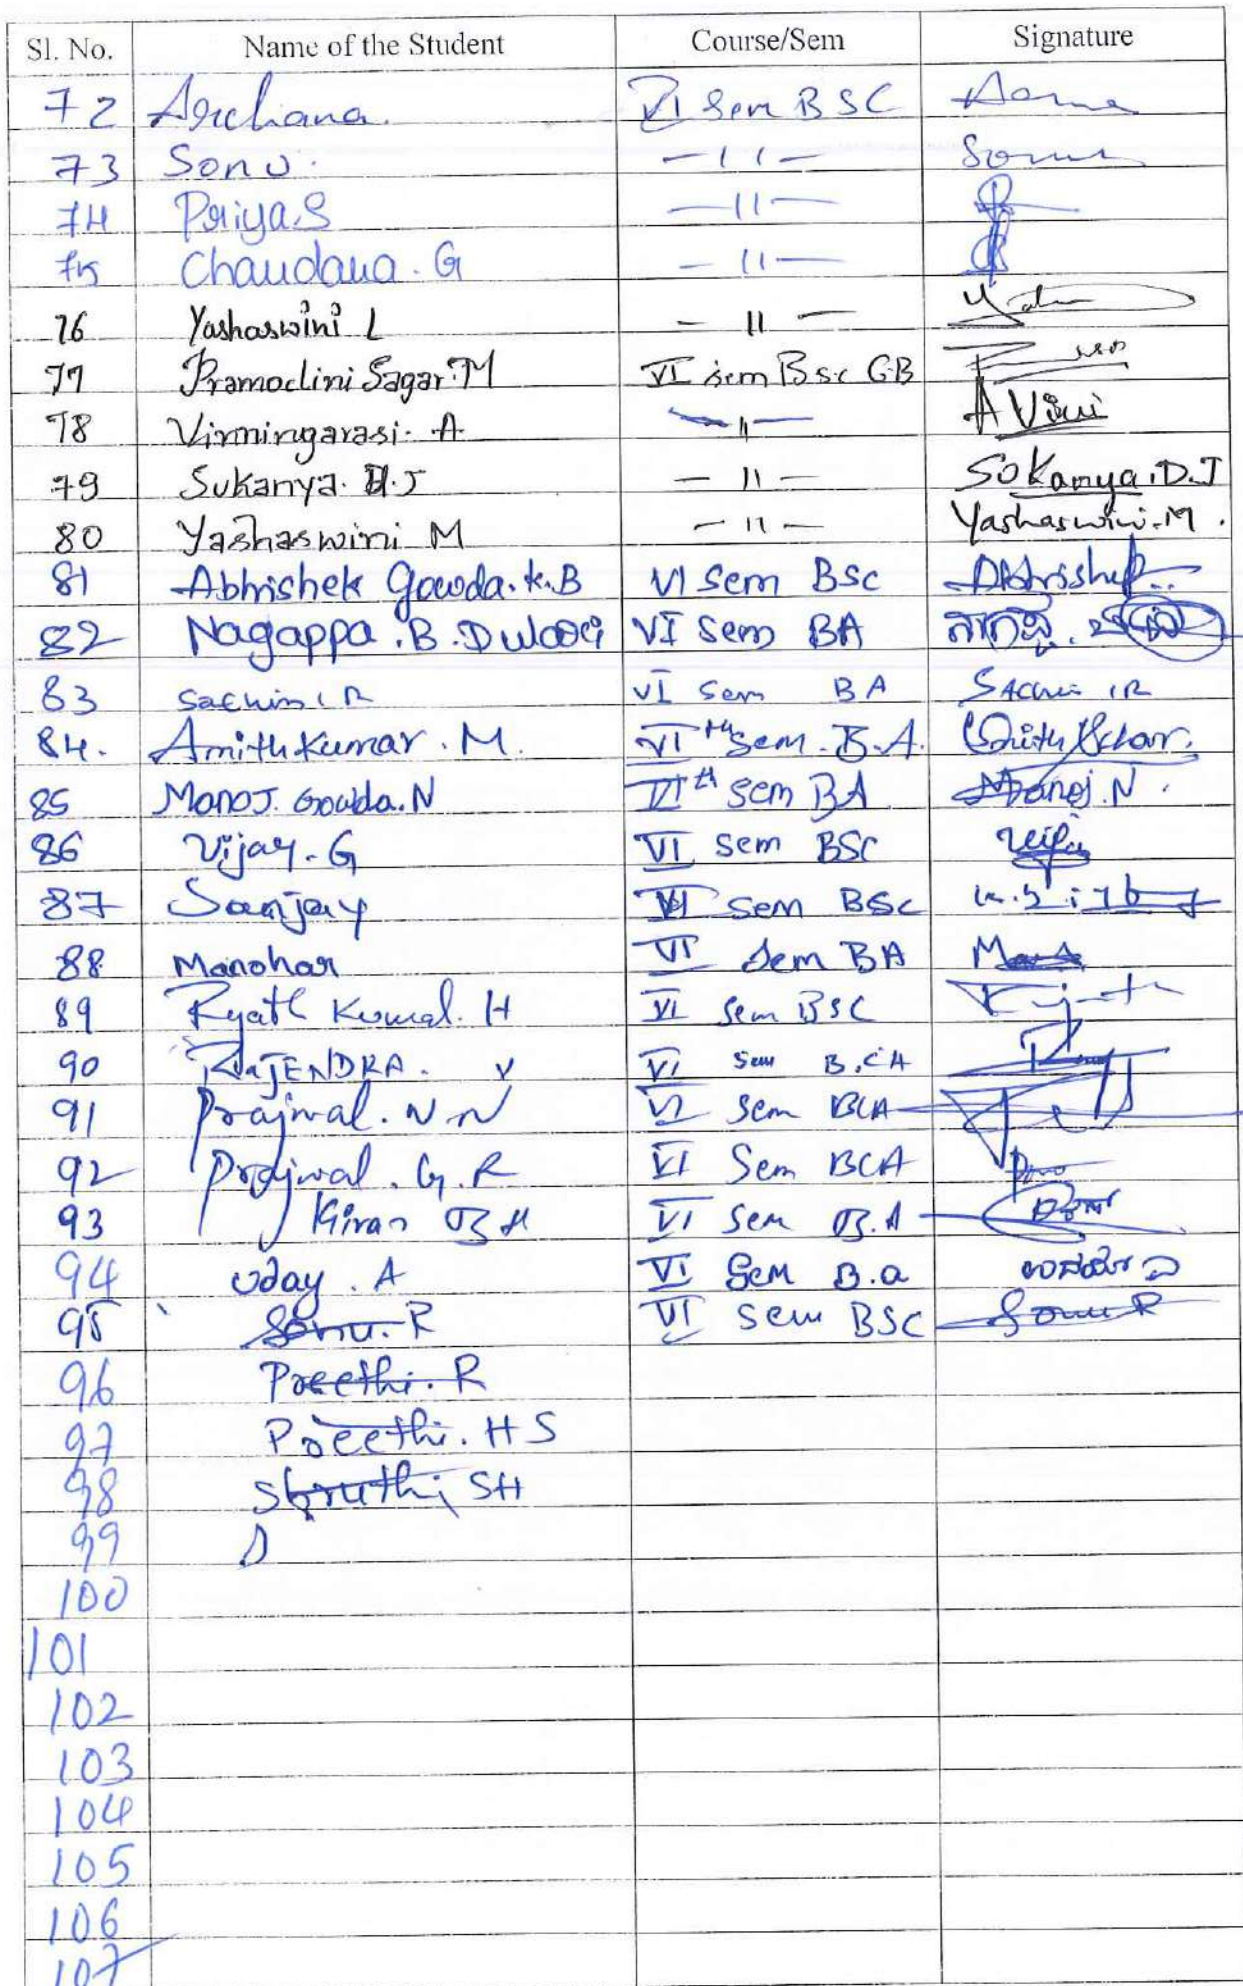 Sl. No. Name of the Student Course/Sem Signature
72 Archana. VI Sem BSC
73 Sonu. -11- Sonu
74 Priya.S -11-
75 Chandana. G -11-
76 Yashaswini L -11-
77 Pramodini Sagar.M VI sem Bsc GB
78 A. -11- A Vini
79 Sukanya. D.J -11- Sukanya.D.J
80 Yashaswini M -11- Yashaswini.M.
81 Abhishek Gowda.K.B VI Sem BSc Abhishek
82 Nagappa.B. VI Sem BA
83 Sachin I R VI Sem BA Sachin IR
84. Amith Kumar. M. VI th Sem. B.A.
85 Manoj. Gowda.N VI th Sem BA Manoj.N.
86 Vijay. G VI Sem BSC
87 Sanjay VI Sem BSc
88 Manohar VI Sem BA
89 H VI Sem BSC
90 RaJENDRA. V VI Sem B.CA
91 Prajwal. N N VI Sem BCA
92 Prajwal. G. R VI Sem BCA
93 Kiran B H VI Sem B.A
94 Uday. A VI Sem B.a
95 Sonu. R VI Sem BSC Sonu R
96 Preethi. R
97 Preethi. H S
98 Shruthi SH
99
100
101
102
103
104
105
106
107